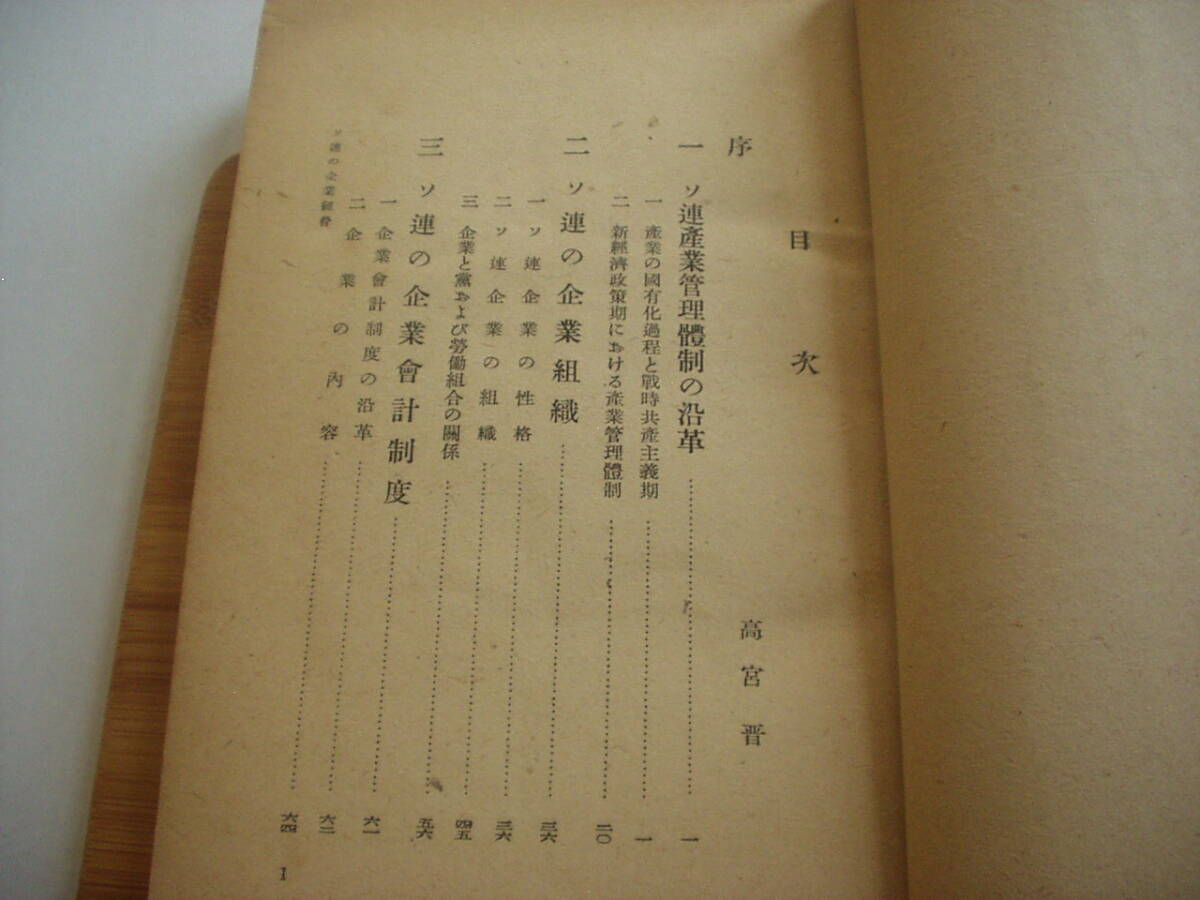 目次
序 高宮晋
一 ソ連產業管理體制の沿革……一
一 產業の國有化過程と戰時共產主義期……一
二 新經濟政策期における產業管理體制……二〇
二 ソ連の企業組織……三六
一 ソ連企業の性格……三六
二 ソ連企業の組織……四五
三 企業と黨および勞働組合の關係……五六
三 ソ連の企業會計制度……六一
一 企業會計制度の沿革……六二
二 企業の內容……六四
ソ連の企業經營
1